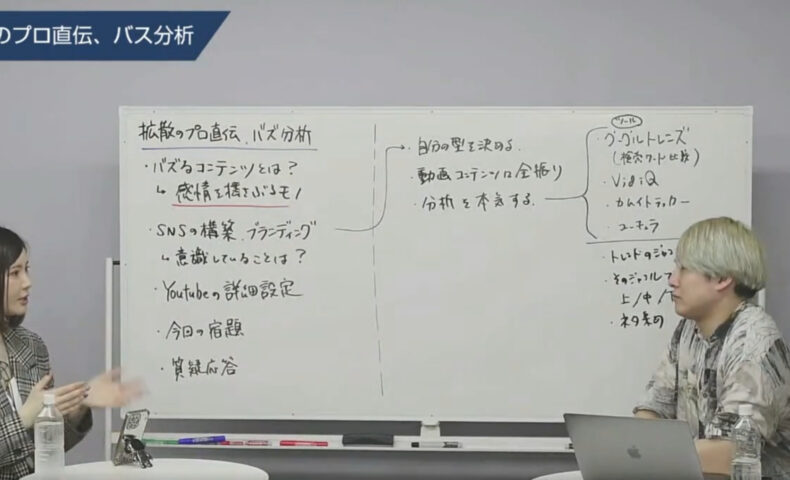 のプロ直伝、バス分析
拡散のプロ直伝、バズ分析
・バズるコンテンツとは?
↳ 感情を揺さぶるモノ
・SNSの構築、ブランディング
↳ 意識していることは?
・Youtubeの詳細設定
・今日の宿題
・質疑応答
・自分の型を決める.
・動画コンテンツに全振り
・分析を本気する.
ツール
・グーグルトレンズ
(検索ワード比較)
・VidiQ
・カムイトラッカー
・ユーチュラ
・トレンドのジャン
・そのジャンルで
上/中/
・ネタ集め